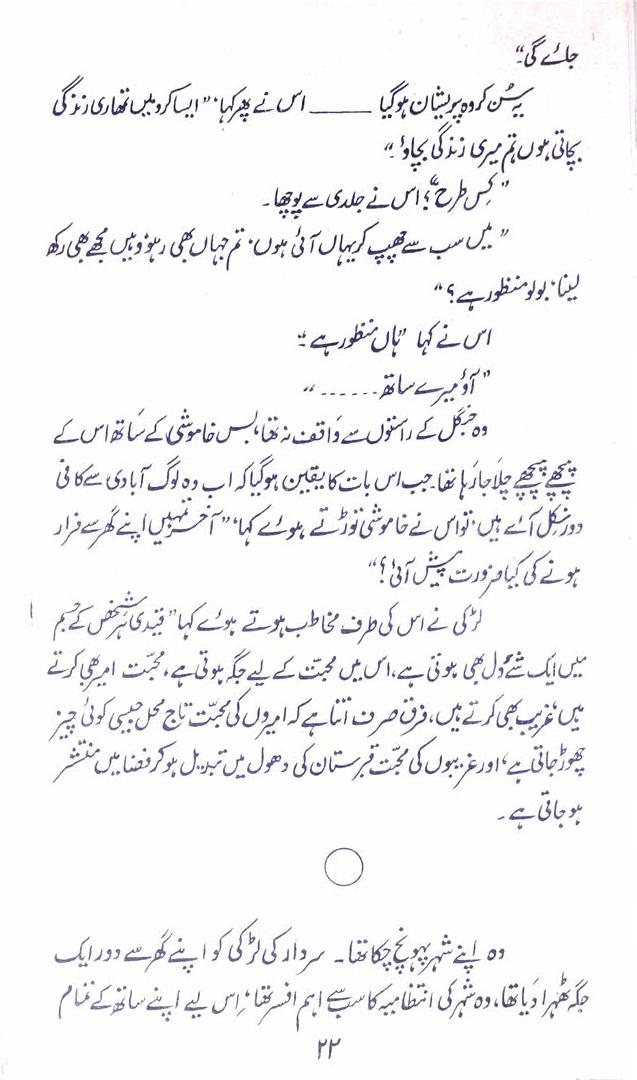 جائے گی۔"
یہ سُن کر وہ پریشان ہو گیا ــــــ اس نے پھر کہا، "ایسا کرو میں تمھاری زندگی
بچاتی ہوں تم میری زندگی بچاؤ۔"
"کِس طرح؟" اس نے جلدی سے پوچھا۔
"میں سب سے چھپ کر یہاں آئی ہوں، تم جہاں بھی رہو وہیں مجھے بھی رکھ
لینا، بولو منظور ہے؟"
اس نے کہا "ہاں منظور ہے۔"
"آؤ میرے ساتھ۔۔۔۔۔۔"
وہ جنگل کے راستوں سے واقف نہ تھا، بس خاموشی کے ساتھ اس کے
پیچھے پیچھے چلا جا رہا تھا۔ جب اس بات کا یقین ہو گیا کہ اب وہ لوگ آبادی سے کافی
دور نکل آئے ہیں، تو اس نے خاموشی توڑتے ہوئے کہا، "آخر تمہیں اپنے گھر سے فرار
ہونے کی کیا ضرورت پیش آئی؟"
لڑکی نے اس کی طرف مخاطب ہوتے ہوئے کہا "قیدی ہر شخص کے جسم
میں ایک شے دل بھی ہوتی ہے، اس میں محبت کے لیے جگہ ہوتی ہے، محبّت امیر بھی کرتے
ہیں، غریب بھی کرتے ہیں، فرق صرف اتنا ہے کہ امیروں کی محبّت تاج محل جیسی کوئی چیز
چھوڑ جاتی ہے، اور غریبوں کی محبّت قبرستان کی دھول میں تبدیل ہو کر فضا میں منتشر
ہو جاتی ہے۔
وہ اپنے شہر پہونچ چکا تھا۔ سردار کی لڑکی کو اپنے گھر سے دور ایک
جگہ ٹھہرا دیا تھا، وہ شہر کی انتظامیہ کا سب سے اہم افسر تھا، اِس لیے اپنے ساتھ کے تمام
۲۲